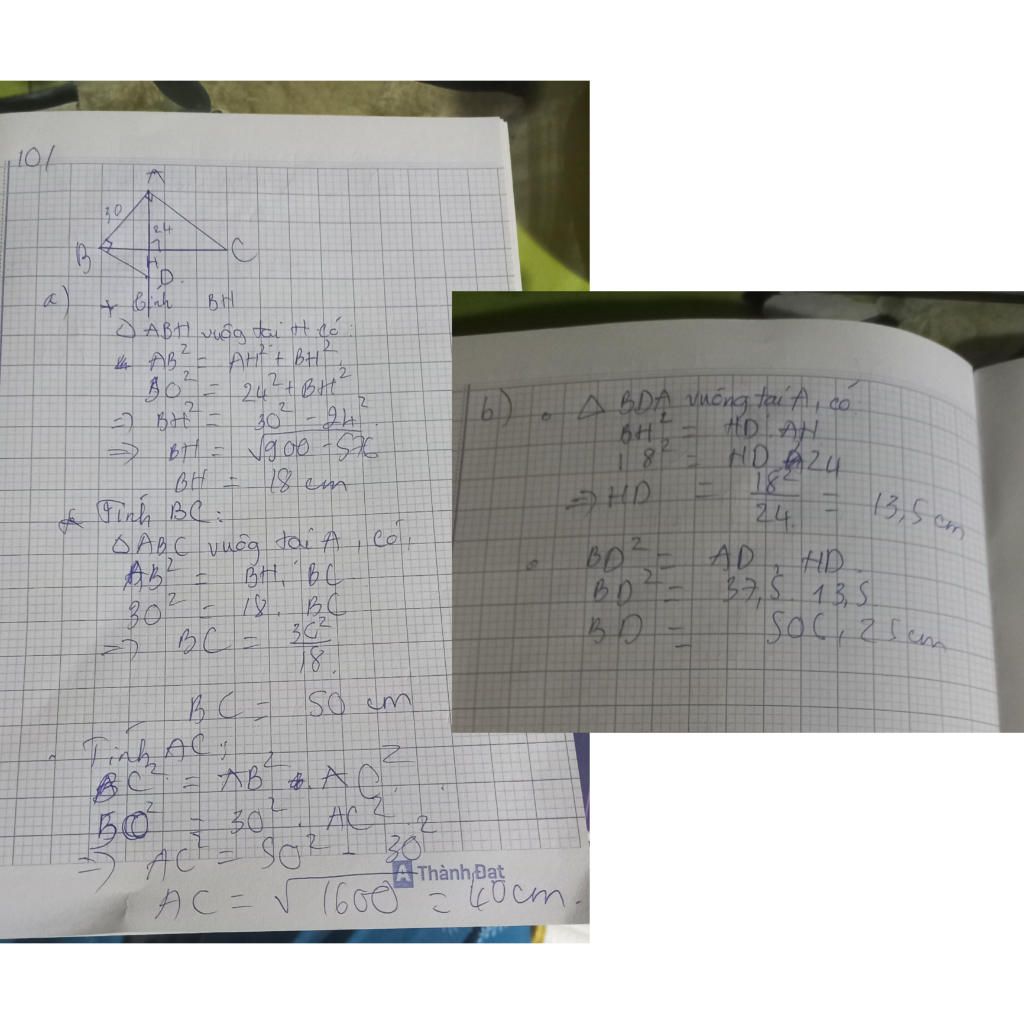 10/
A
30
24
B
H
C
D
a) + Tính BH
△ ABH vuôg tại H có:
AB² = AH² + BH²
30² = 24² + BH²
=> BH² = 30² - 24²
=> BH = √900 - 576
BH = 18 cm
* Tính BC:
△ ABC vuôg tại A, có,
AB² = BH. BC
30² = 18. BC
=> BC = 30²/18.
BC = 50 cm
. Tính AC:
BC² = AB² . AC²
50² = 30² . AC²
=> AC² = 50² - 30²
AC = √1600 = 40cm.
A Thành Đạt
b) . △ BDA vuông tại A, có
BH² = HD. AH
18² = HD. 24
=> HD = 18²/24. = 13,5 cm
. BD² = AD . HD.
BD² = 37,5. 13,5
BD = 506,25cm